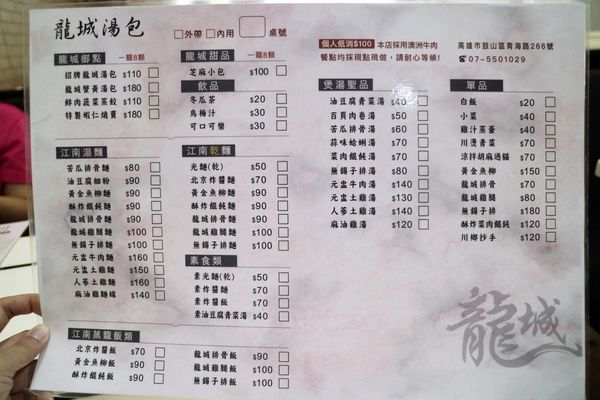 龍城湯包
□外帶 □內用 桌號
個人低消$100 本店採用澳洲牛肉
餐點均採現點現做，請耐心等候！
高雄市鼓山區青海路266號
☎07-5501029
龍城御點 一籠8顆
招牌龍城湯包 $110
龍城蟹黃湯包 $180
鮮肉蔬菜蒸餃 $110
特製蝦仁燒賣 $180
龍城甜品 一籠8顆
芝麻小包 $100
飲品
冬瓜茶 $20
烏梅汁 $30
可口可樂 $30
江南湯麵
苦瓜排骨麵 $80
油豆腐細粉 $90
黃金魚柳麵 $90
酥炸餛飩麵 $90
龍城排骨麵 $90
龍城雞腿麵 $100
無錫子排麵 $100
元盅牛肉麵 $160
元盅土雞麵 $150
人蔘土雞麵 $160
麻油雞麵線 $140
江南乾麵
光麵(乾) $50
北京炸醬麵 $70
黃金魚柳麵 $90
酥炸餛飩麵 $90
龍城排骨麵 $90
龍城雞腿麵 $100
無錫子排麵 $100
素食類
素光麵(乾) $50
素炸醬麵 $70
素炸醬飯 $70
素油豆腐青菜湯 $40
江南蒸籠飯類
北京炸醬飯 $70
黃金魚柳飯 $90
酥炸餛飩飯 $90
龍城排骨飯 $90
龍城雞腿飯 $100
無錫子排飯 $100
煲湯聖品
油豆腐青菜湯 $40
百頁肉卷湯 $50
苦瓜排骨湯 $60
蒜味蛤蜊湯 $70
菜肉餛飩湯 $70
無錫子排湯 $80
元盅牛肉湯 $140
元盅土雞湯 $130
人蔘土雞湯 $140
麻油雞湯 $120
單品
白飯 $20
小菜 $40
雞汁蒸蛋 $40
川燙青菜 $70
涼拌胡麻過貓 $70
黃金魚柳 $150
龍城排骨 $70
龍城雞腿 $80
無錫子排 $180
酥炸菜肉餛飩 $120
川鄉抄手 $120
龍城